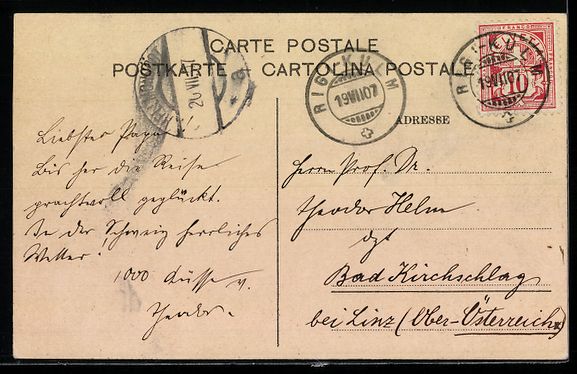 CARTE POSTALE
POSTKARTE CARTOLINA POSTALE
ADRESSE
RIGI-KULM
19.VII.07
RIGI-KULM
19.VII.07
FRANCO
10
20 VII
Liebster Papa!
Bis her die Reise
prachtvoll geglückt.
In der Schweiz herrliches
Wetter!
1000 Küsse v.
Theodor.
Herrn Prof. Dr.
Theodor Helm
dzt
Bad Kirchschlag
bei Linz (Ober-Österreich)